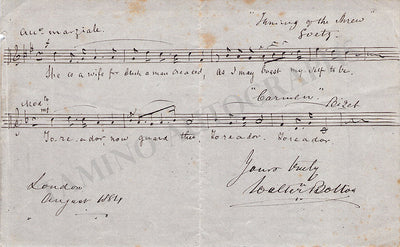 "Taming of the Shrew"
Goetz.
All⁰ marziale.
She is a wife for such a man created, as I may boast my self to be.
"Carmen"
Bizet
Mod to
mf
Toreador now guard thee Toreador, Toreador
London
August 1884
Yours truly
Walter Bolton
TAMINO AUTOGRAPHS